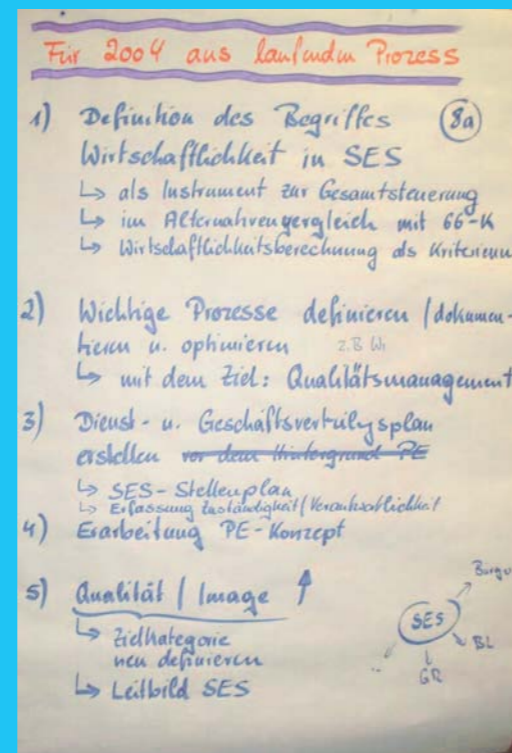 Für 2004 aus laufenden Prozess
1) Definition des Begriffes 8a
Wirtschaftlichkeit in SES
↳ als Instrument zur Gesamtsteuerung
↳ im Alternativenvergleich mit GG-K
↳ Wirtschaftlichkeitsberechnung als Kriterium
2) Wichtige Prozesse definieren / dokumen-
tieren u. optimieren z.B Wi
↳ mit dem Ziel: Qualitätsmanagement
3) Dienst- u. Geschäftsverteilungsplan
erstellen vor dem Hintergrund PE
↳ SES-Stellenplan
↳ Erfassung Zuständigkeit / Verantwortlichkeit
4) Erarbeitung PE-Konzept
5) Qualität / Image ↑
↳ Zielkategorie
neu definieren
↳ Leitbild SES
SES
BL
GR